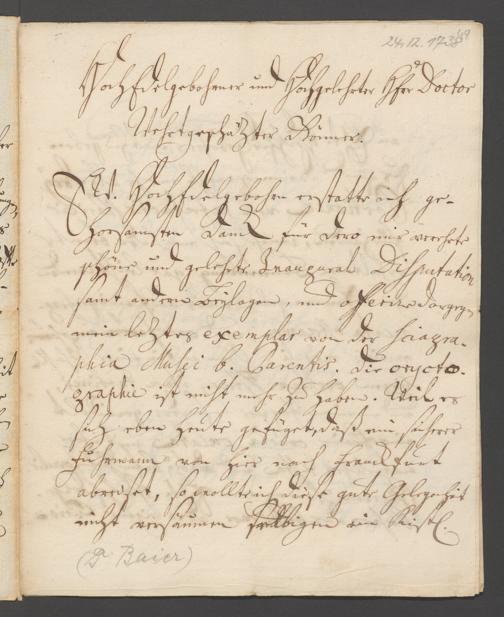 24.12.1738
HochEdelgebohrner und Hochgelehrter Herr Doctor
Wehrtgeschäzter Gönner.
Ew. HochEdelgebohrn erstatte ich ge-
horsamsten Danck für Dero mir verehrte
schöne und gelehrte Inaugural Disputation
samt andern Beylagen, und offerire dargegen
mein letztes exemplar von der Sciagra-
phia Musei b. Parentis. Die oryctо-
graphie ist nicht mehr zu haben. Weil es
sich eben heute gefüget, daß ein sicherer
Fuhrmann von hier nach Franckfurt
abreiset, so wollte ich diese gute Gelegenheit
nicht versäumen selbigem ein Kistl.
(Dr Baier)